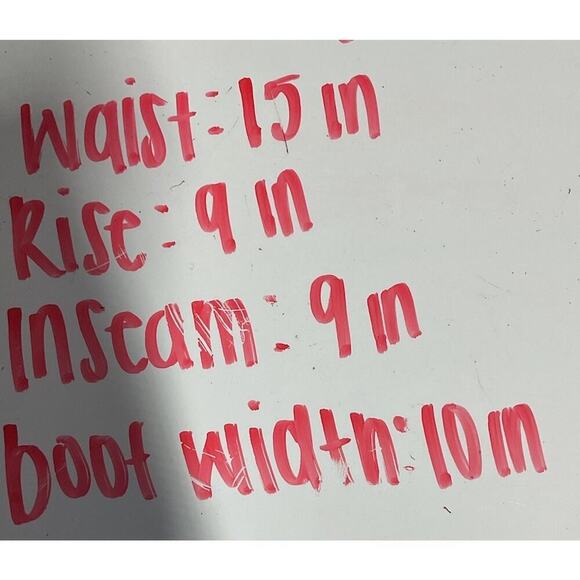 Waist: 15 in
Rise: 9 in
Inseam: 9 in
boot width: 10 in